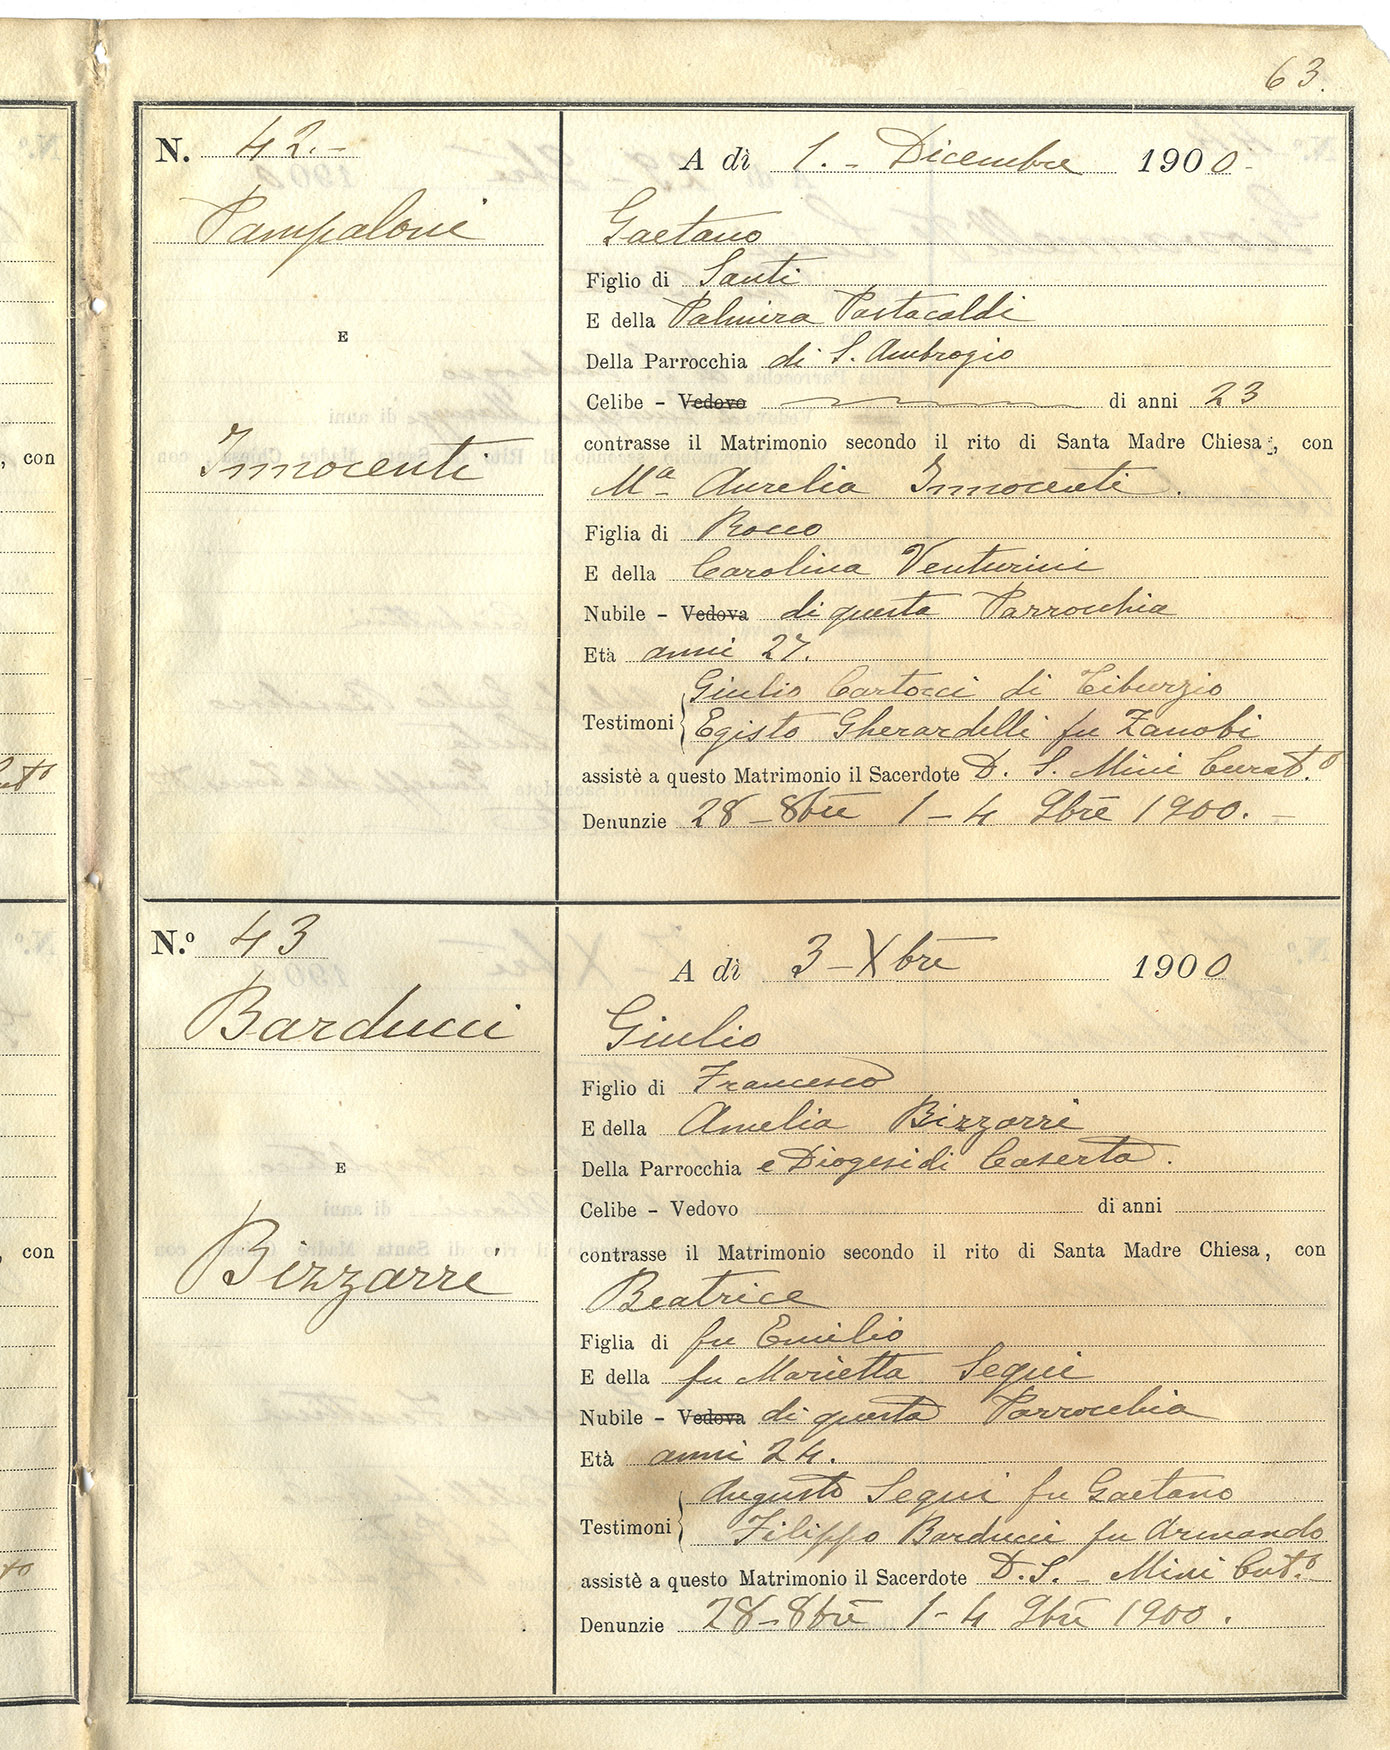 63.
N. 42.-
Pampaloni
E
Innocenti
A dì 1. - Dicembre 1900-
Gaetano
Figlio di Santi
E della Palmira Portacaldi
Della Parrocchia di S. Ambrogio
Celibe - Vedovo di anni 23
contrasse il Matrimonio secondo il rito di Santa Madre Chiesa, con
Ma Aurelia Innocenti.
Figlia di Rocco
E della Carolina Venturini
Nubile - Vedova di questa Parrocchia
Età anni 27.
Testimoni Giulio Cartocci di Tiburzio
Egisto Gherardelli fu Zanobi
assistè a questo Matrimonio il Sacerdote D. S. Mini Curat.o
Denunzie 28-8bre 1-4 9bre 1900.-
N.o 43
Barducci
E
Bizzarri
A dì 3-Xbre 1900
Giulio
Figlio di Francesco
E della Amelia Bizzarri
Della Parrocchia e Diogesi di Caserta.
Celibe - Vedovo di anni
contrasse il Matrimonio secondo il rito di Santa Madre Chiesa, con
Beatrice
Figlia di fu Emilio
E della fu Marietta Sequi
Nubile - Vedova di questa Parrocchia
Età anni 24.
Testimoni Augusto Sequi fu Gaetano
Filippo Barducci fu Armando
assistè a questo Matrimonio il Sacerdote D. S. - Mini Cut.o
Denunzie 28-8bre 1-4 9bre 1900.
, con
, con